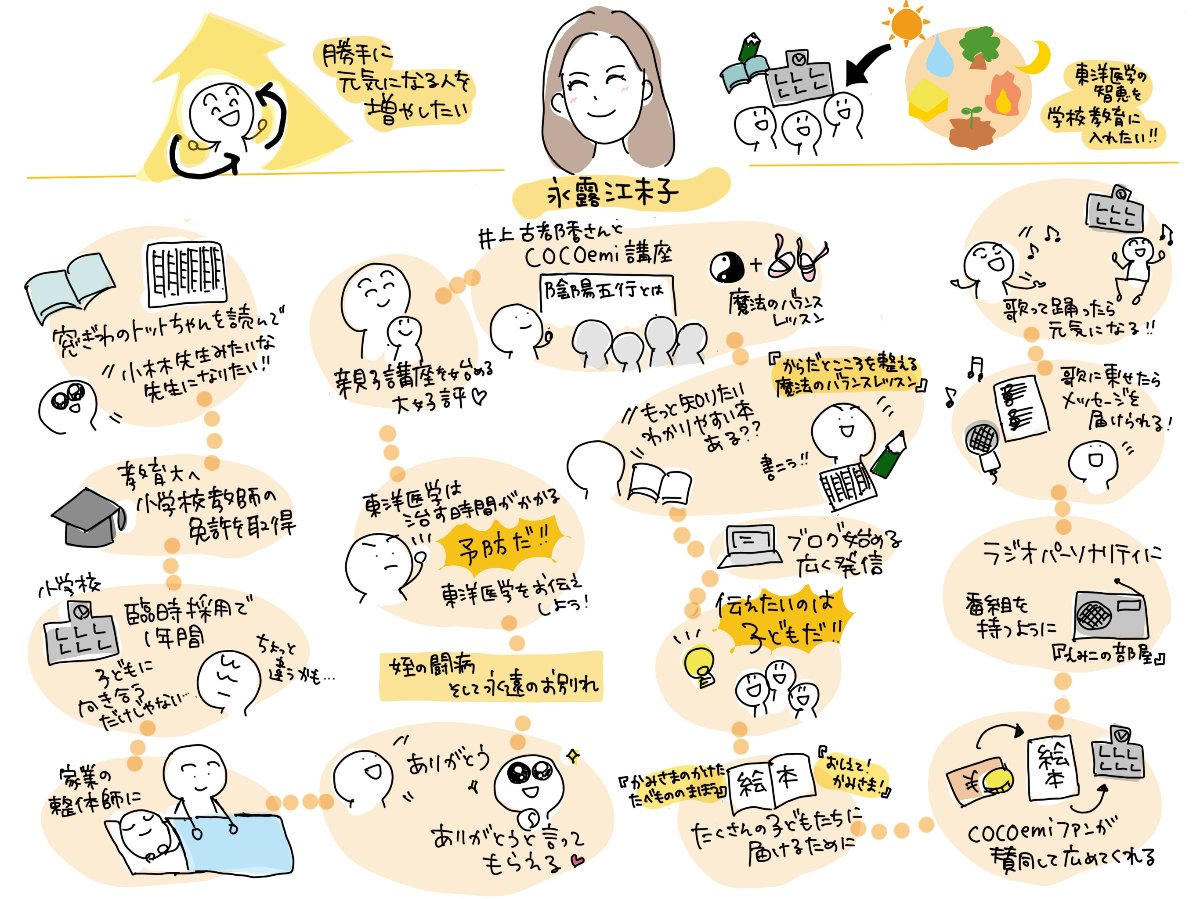 勝手に
元気になる人を
増やしたい
東洋医学の
智恵を
学校教育に
入れたい!!
永露江未子
窓ぎわのトットちゃんを読んで
小林先生みたいな
先生になりたい!!
教育大へ
小学校教師の
免許を取得
小学校
臨時採用で
1年間
子どもに
向き合う
だけじゃない…
ちょっと
違うかも…
家業の
整体師に
ありがとう
ありがとうと言って
もらえる
姪の闘病
そして永遠のお別れ
東洋医学は
治す時間がかかる
予防だ!!
東洋医学をお伝え
しよう!
親子講座を始める
大好評♡
井上古都香さんと
COCOemi講座
陰陽五行とは
+
魔法のバランス
レッスン
もっと知りたい
わかりやすい本
ある??
『からだとこころを整える
魔法のバランスレッスン』
書こう!!
ブログ始める
広く発信
伝えたいのは
子どもだ!!
『かみさまのかけた
たべもののまほう』
絵本
『おしえて!
かみさま!』
たくさんの子どもたちに
届けるために
絵
本
COCOemiファンが
賛同して広めてくれる
ラジオパーソナリティに
番組を
持つように
『えみこの部屋』
歌に乗せたら
メッセージを
届けられる!
歌って踊ったら
元気になる!!